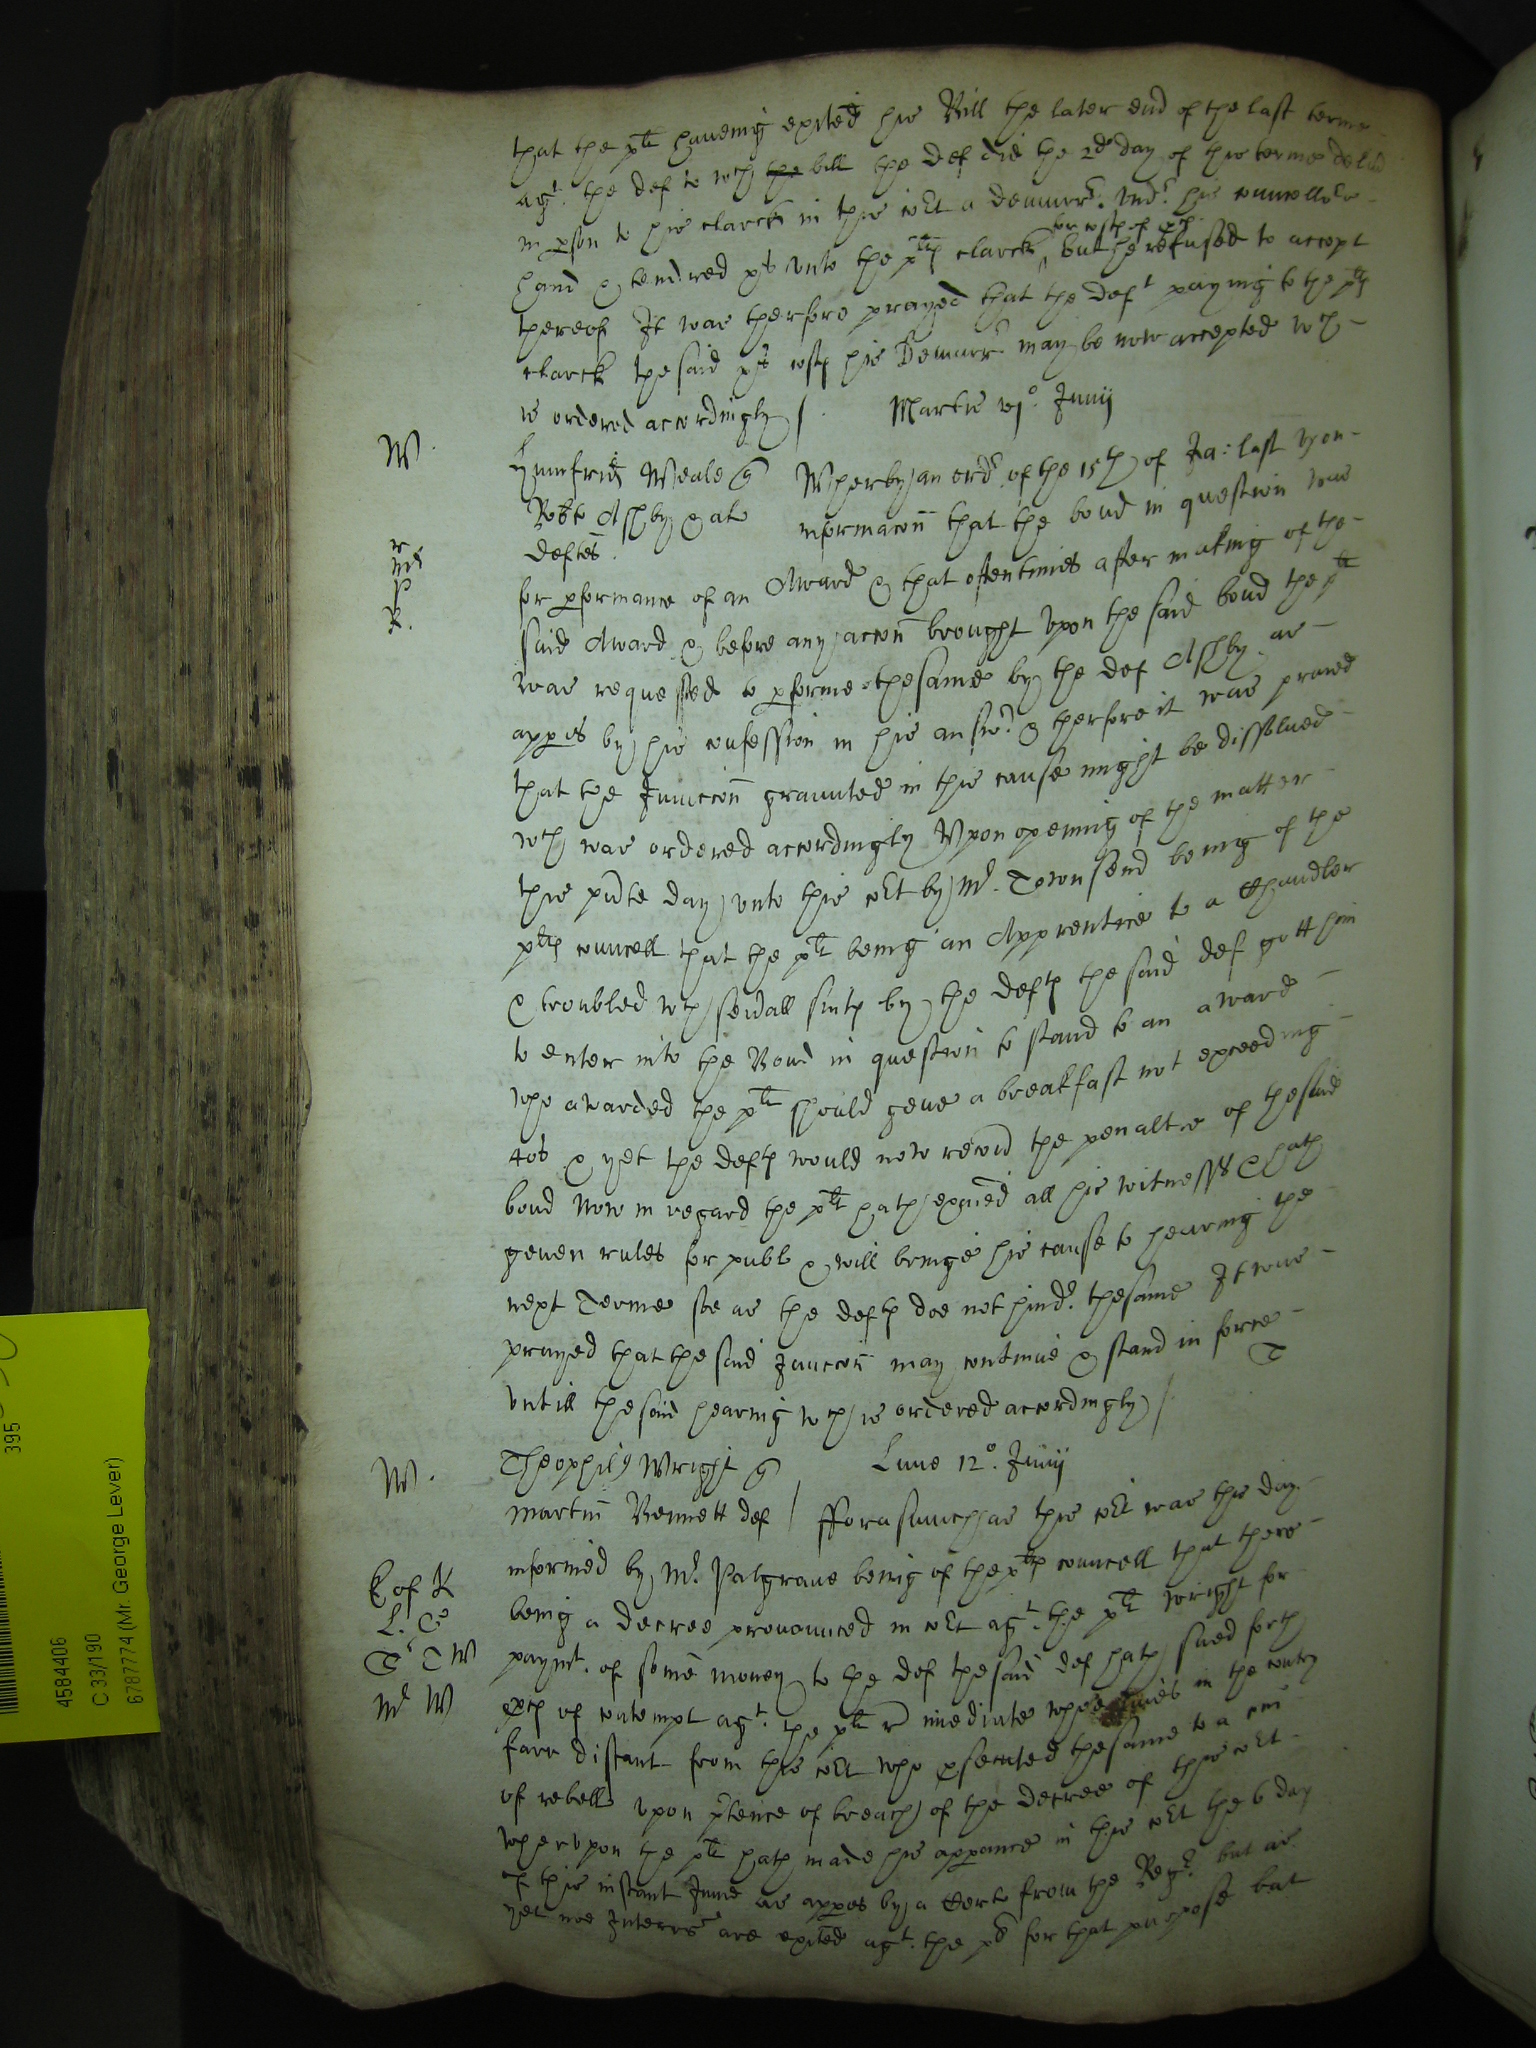 that the plt haueing exited his Bill the later end of the last terme
agt. the def to wch the bill the def did the 2d day of this terme deliu
in pson to his clarck in this cort a demurrr. undr. his councellors
hand & tendred xs unto the plts clarck for costs of but he refused to accept
thereof It was therfore prayed that the deft paying to the plts
clarck the said xs costs his Demurr may be now accepted wch
is ordered accordingly / Martis vjo. Junij
W. Humfrid Weale q Wherby an ordr. of the 15th of Ja: last vpon
Robte Ashby & als informacon that the bond in question was
deftes.
r
mr
P
R.
for pformance of an Award & that oftentimes after making of the
said Award & before any accon brought vpon the said bond the plt
was requested to pforme thesame by the def Ashby as
appes by his confession in his answr. & therfore it was prayed
that the Juncon graunted in this cause might be dissolued
wch was ordered accordingly Vpon opening of the matter
this pnte day vnto this cort by Mr. Townsend being of the
plts councell that the plt being an Apprentice to a Chandler
& troubled wth seuall suits by the defts the said def gott him
to enter into the Bond in question to stand to an award
who awarded the plt should geue a breakfast not exceeding
40s & yet the defts would now recou the penaltie of thesaid
bond Now in regard the plt hath exaied all his witnesses & hath
geuen rules for publ & will bringe his cause to hearing the
next Terme soe as the defts doe not hindr. thesame It was
prayed that the said Juncon may continue & stand in force
T
vntill thesaid hearing wch is ordered accordingly /
W. Theophils Wright q Lune 12o. Junij
Martin Bennett def / fforasmuch as this cort was this day
informed by Mr. Palgraue being of the plts councell that there
E of K
being a decree pronounced in cort agt. the plt Wright for
L. C
paymt. of some money to the def thesaid def hath sued forth
T W
pces of contempt agt. the plt imediate whoe liues in the contry
Mr W
farr distant from this cort who psecuted thesame to a com
of rebell vpon ptence of breach of the decree of this cort
wherupon the plt hath made his appance in this cort the 6 day
of this instant June as appes by a Certe from the Regr. but as
yet noe Interrs are exited agt. the plt for that purpose but
395
4584406
C 33/190
6787774 (Mr. George Lever)